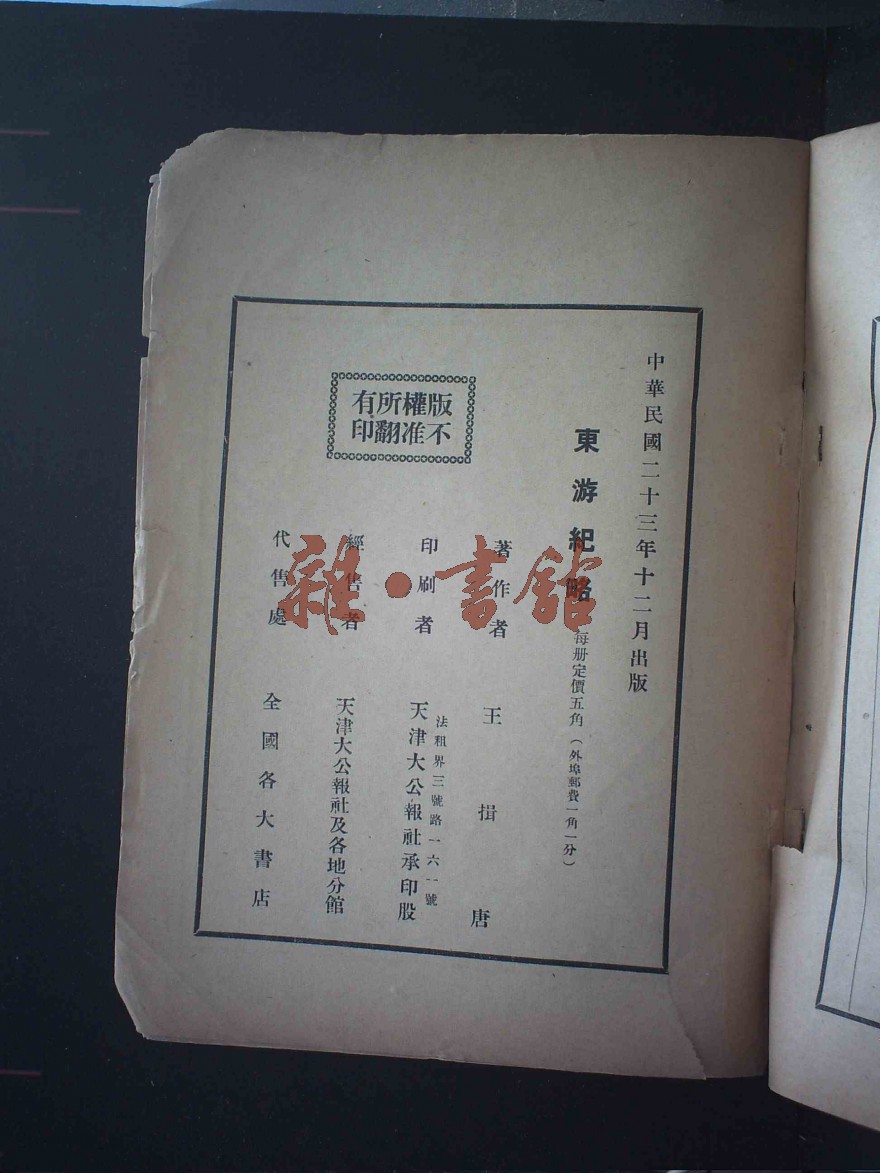 中華民國二十三年十二月出版
東游紀略 每册定價五角（外埠郵費一角一分）
著作者 王揖唐
印刷者 法租界三號路一六一號
天津大公報社承印股
經售者 天津大公報社及各地分館
代售處 全國各大書店
版權所有
不准翻印
雜·書館